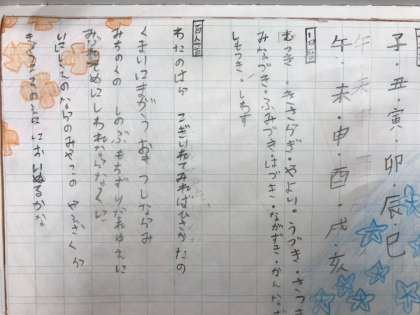 子・丑・寅・卯・辰・巳
午・未・申・酉・戌・亥
むつき・きさらぎ・やよい。うづき・さつ
みなづき・ふみづき・はづき・ながつき・かんなづ
しもつき・しわす
わたのはら こぎいでてみればひさかたの
くもいにまがう おきつしらなみ
みちのくの しのぶもちずりだれゆえに
みだれそめにしわれならなくに
いにしえのならのみやこの やえざくら
きょうここのえに においぬるかな